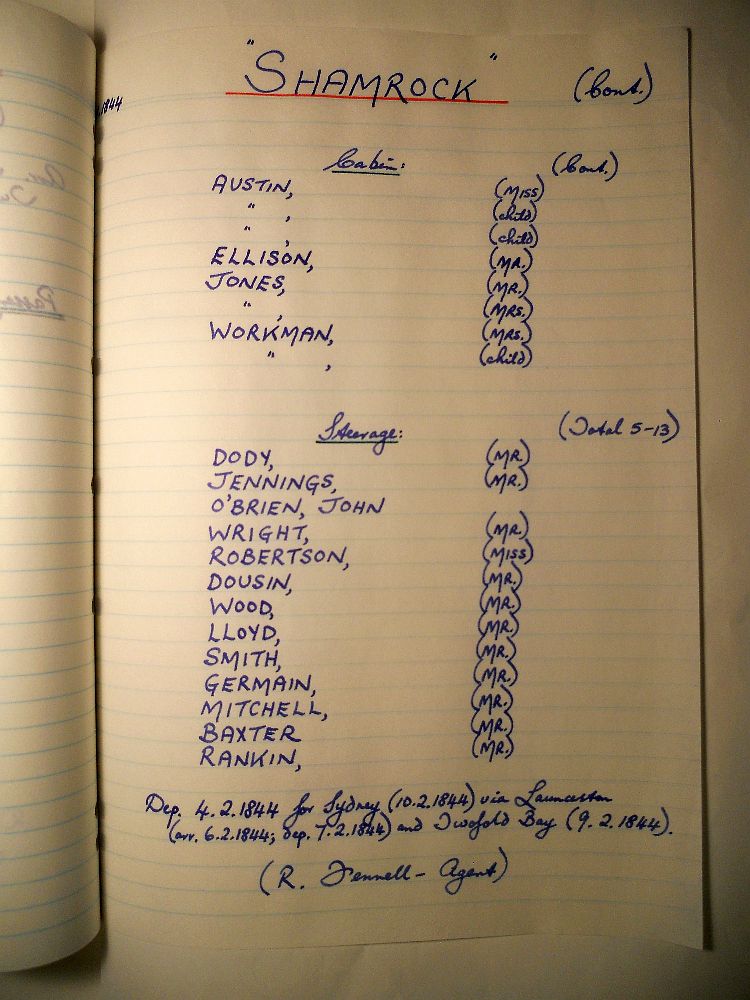 "SHAMROCK" (Cont.)
1844
Cabin: (Cont.)
AUSTIN, (MISS)
" , (child)
" , (child)
ELLISON, (MR.)
JONES, (MR.)
" , (MRS.)
WORKMAN, (MRS.)
" , (child)
Steerage: (Total 5-13)
DODY, (MR.)
JENNINGS, (MR.)
O'BRIEN, JOHN
WRIGHT, (MR.)
ROBERTSON, (MISS)
DOUSIN, (MR.)
WOOD, (MR.)
LLOYD, (MR.)
SMITH, (MR.)
GERMAIN, (MR.)
MITCHELL, (MR.)
BAXTER (MR.)
RANKIN, (MR.)
Dep. 4.2.1844 for Sydney (10.2.1844) via Launceston
(arr. 6.2.1844; dep. 7.2.1844) and Twofold Bay (9.2.1844).
(R. Fennell - Agent)